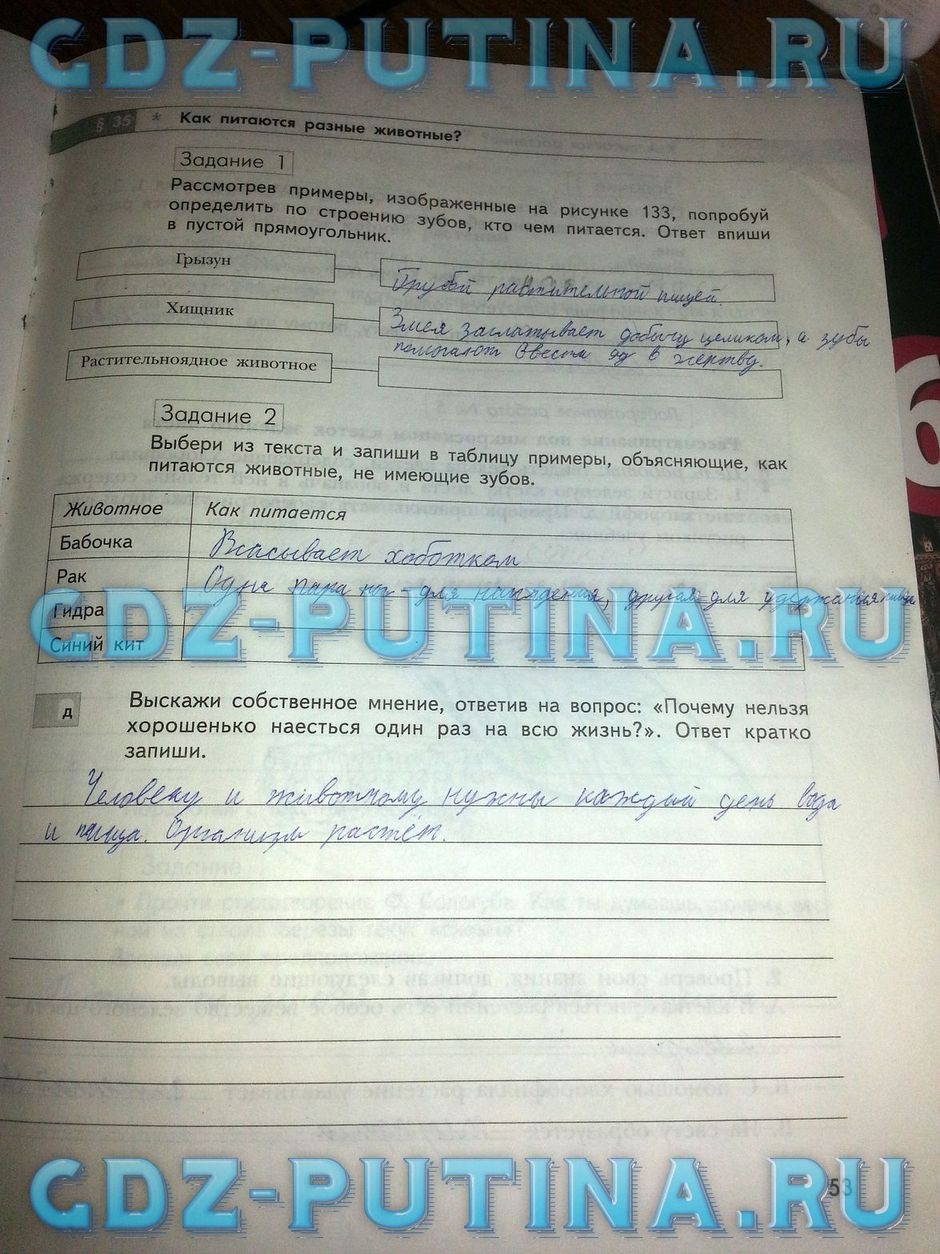 GDZ-PUTINA.RU
§ 35 * Как питаются разные животные?
Задание 1
Рассмотрев примеры, изображенные на рисунке 133, попробуй
определить по строению зубов, кто чем питается. Ответ впиши
в пустой прямоугольник.
Грызун
Грубой растительной пищей.
Хищник
Змея заглатывает добычу целиком, а зубы
помогают ввести яд в жертву.
Растительноядное животное
Задание 2
Выбери из текста и запиши в таблицу примеры, объясняющие, как
питаются животные, не имеющие зубов.
Животное Как питается
Бабочка Всасывает хоботком
Рак Одна пара ног - для нападения, другая - для удержания пищи
Гидра
GDZ-PUTINA.RU
Синий кит
д Выскажи собственное мнение, ответив на вопрос: «Почему нельзя
хорошенько наесться один раз на всю жизнь?». Ответ кратко
запиши.
Человеку и животному нужны каждый день вода
и пища. Организм растёт.
GDZ-PUTINA.RU
53